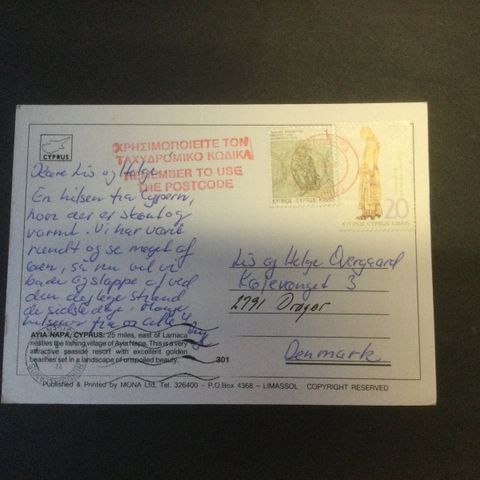 CYPRUS
ΧΡΗΣΙΜΟΠΟΙΕΙΤΕ ΤΟΝ
ΤΑΧΥΔΡΟΜΙΚΟ ΚΩΔΙΚΑ
REMEMBER TO USE
THE POSTCODE
ΚΥΠΡΟΣ CYPRUS KIBRIS
20
ΚΥΠΡΟΣ CYPRUS KIBRIS
Kære Lis og Helge
En hilsen fra Cypern,
hvor der er skønt og
varmt. Vi har været
rundt og se meget af
øen, så nu vil vi
bade og slappe af ved
den dejlige strand
de sidste dage. Mange
hilsener fra os alle 4
Lis og Helge Overgaard
3
2791 Dragør
Denmark
AYIA NAPA, CYPRUS: 25 miles, east of Larnaca
nestles the fishing village of Ayia Napa. This is a very
attractive seaside resort with excellent golden
beaches set in a landscape of unspoiled beauty.
301
Published & Printed by MONA Ltd, Tel. 326400 - P.O.Box 4368 - LIMASSOL COPYRIGHT RESERVED